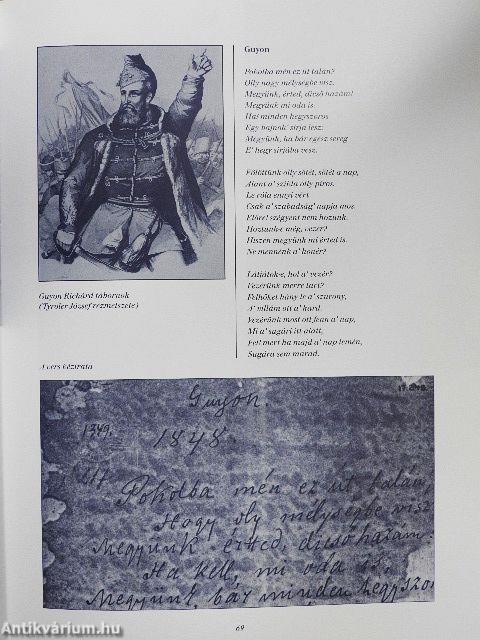 Guyon
Pokolba mén ez út talán?
Olly nagy mélységbe visz.
Megyünk, érted, dicső hazám!
Megyünk mi oda is.
Hai minden hegyszoros
Egy bajnok' sírja lesz:
Megyünk, ha bár egész sereg
E' hegy sírjába vesz.
Fölöttünk olly sötét, sötét a nap,
Alant a' szikla olly piros.
Le róla ennyi vért
Csak a' szabadság' napja mos.
Előre! szégyent nem hozunk.
Hoztunk-e még, vezér?
Hiszen megyünk mi érted is.
Ne mennénk a' honér?
Látjátok-e, hol a' vezér?
Vezérünk merre tart?
Felhőket hány le a' szurony,
A' villám ott a' kard.
Vezérünk most ott fenn a' nap,
Mi a' sugári itt alatt,
Fell mert ha majd a' nap lemén,
Sugára sem marad.
Guyon Richárd tábornok
(Tyroler József rézmetszete)
A vers kézirata
Guyon.
1349.
1848.
Pokolba mén ez út talán,
Hogy oly mélységbe visz
Megyünk érted, dicső hazám!
Ha kell, mi oda is,
Megyünk, bár minden hegyszo
69
Antikvárium.hu